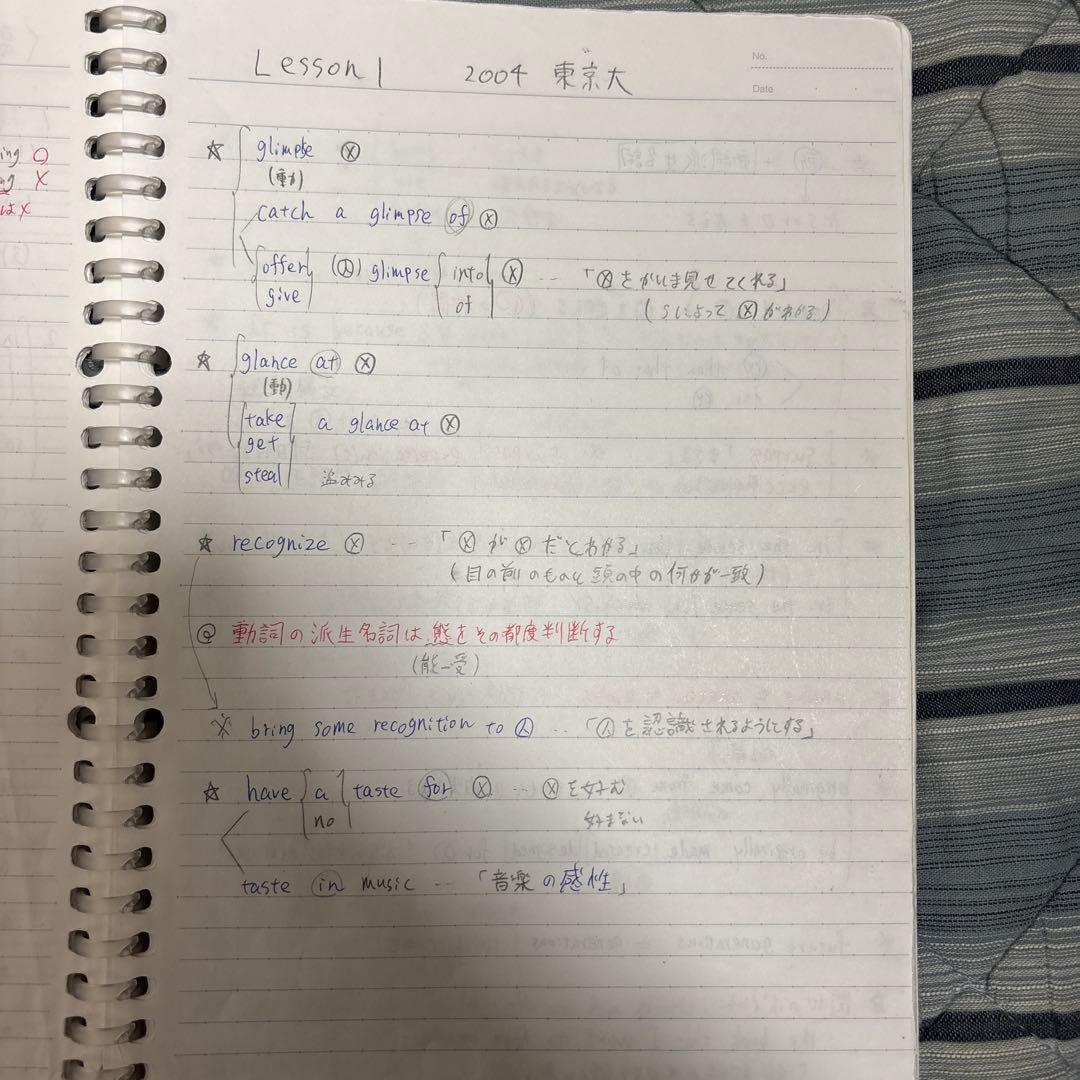 Lesson 1 2004 東京大
No.
Date
☆ glimpse ⓧ
(動)
catch a glimpse of ⓧ
offer (人) glimpse into ⓧ … 「ⓧをかいま見せてくれる」
give of (Sによってⓧがわかる)
☆ glance at ⓧ
(動)
take a glance at ⓧ
get
steal 盗みみる
☆ recognize ⓧ … 「ⓧがⓧだとわかる」
(目の前のものと頭の中の何かが一致)
動詞の派生名詞は態をその都度判断する
(能-受)
※ bring some recognition to 人 … 「人を認識されるようにする」
☆ have a taste for ⓧ … ⓧを好む
no 好まない
taste in music … 「音楽の感性」
ing ○
ng ×
は×